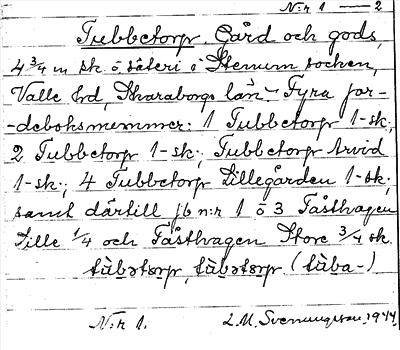 N:r 1 — 2
Tubbetorp. Gård och gods,
4 3/4 m sk ö säteri i Stenum socken,
Valle hd, Skaraborgs län. - Fyra jor-
-deboksnummer: 1 Tubbetorp 1-sk.;
2 Tubbetorp 1-sk.; Tubbetorp Arvid
1-sk.; 4 Tubbetorp Lillegården 1-sk.;
samt därtill jb n:r 1 o 3 Fåsthagen
Lille 1/4 och Fåsthagen Store 3/4 sk.
tùbətɔrp, tùbətɔrp (tùba-)
N:r 1.
L.M. Svenungsson, 1944.